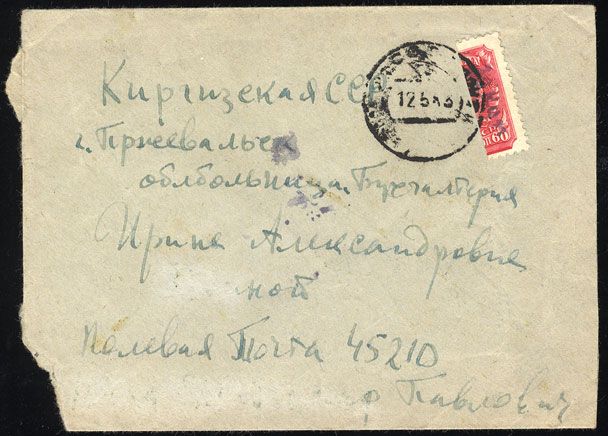 Киргизская ССР
12 5 43
г. Пржевальск
облбольница. Бухгалтерия
60
Ирине Александровне
ной
Полевая Почта 45210
Павлович